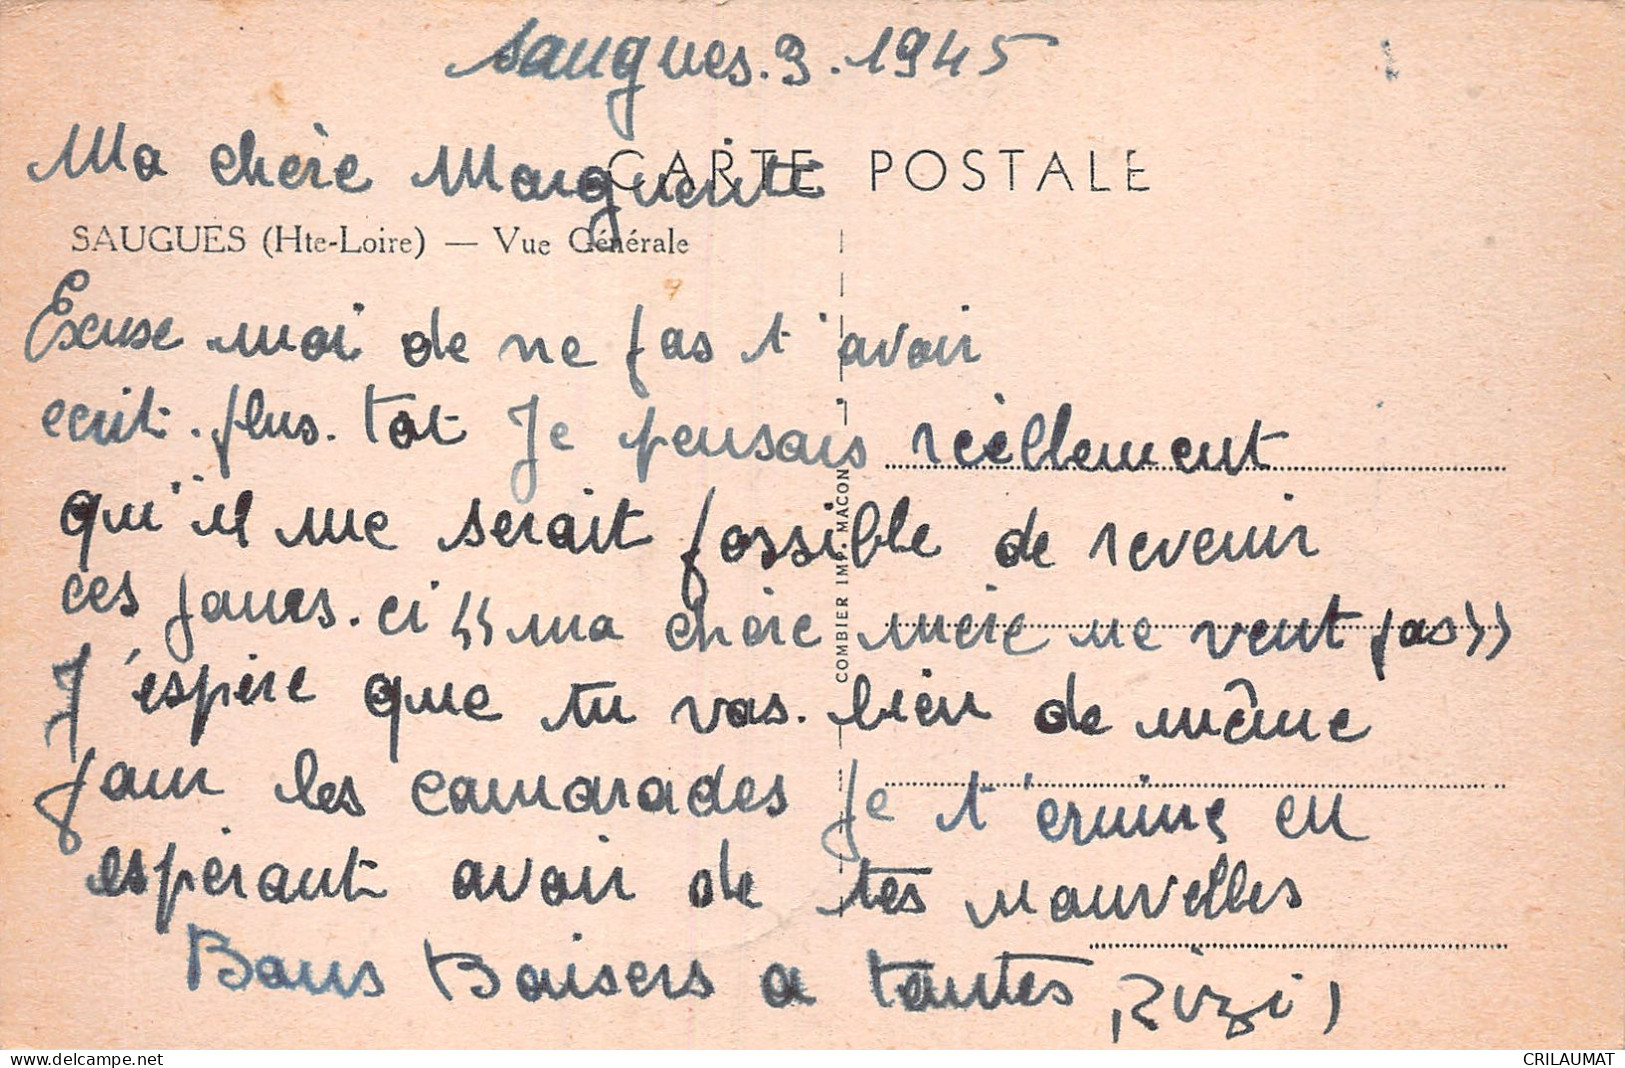 Saugues.3.1945
CARTE POSTALE
Ma chère Marguerite
SAUGUES (Hte-Loire) — Vue Générale
Excuse moi de ne pas t'avoir
ecrit. plus. tot Je pensais réellement
qu'il me serait possible de revenir
ces jours. ci " ma chère mère ne veut pas »
J'espère que tu vas. bien de même
pour les camarades Je t'ermine en
espérant avoir de tes nouvelles
Bons Baisers a toutes, Zizi)
COMBIER IMP. MACON
CRILAUMAT